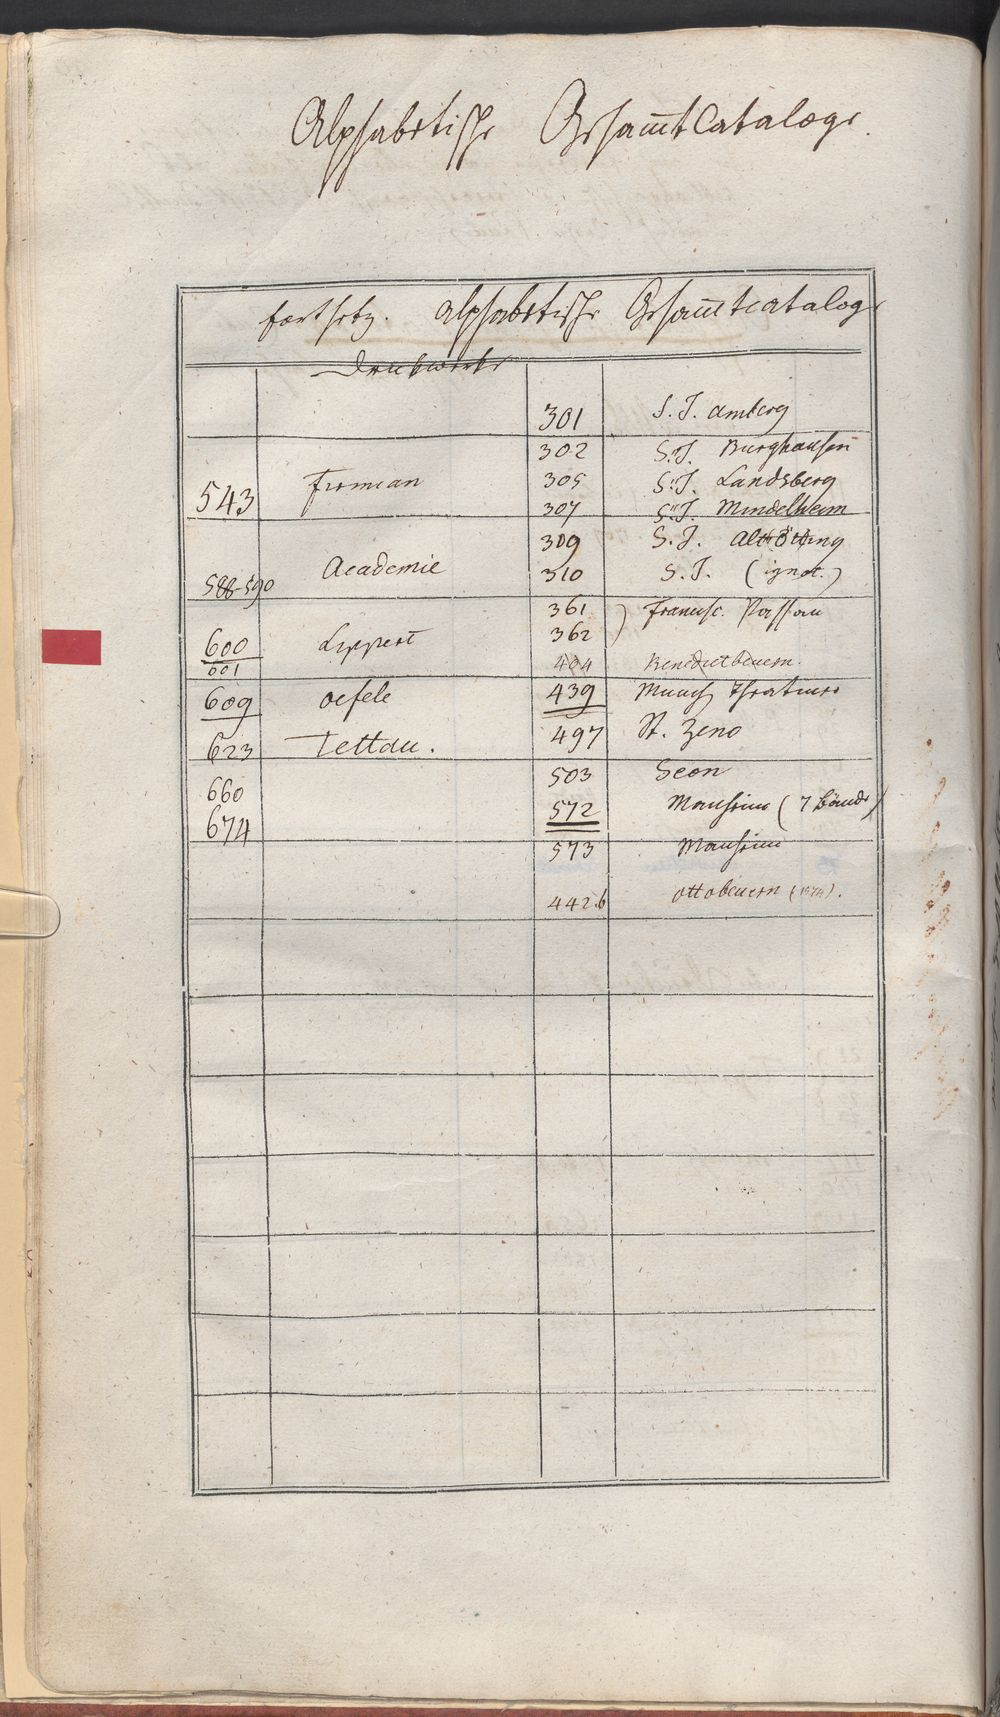 Alphabetische Gesam̅tCataloge.
Fortsetz. alphabetische Gesam̅tcataloge
Druckwerke
301 S. J. Amberg
302 S. J. Burghausen
543 Firmian 305 S. J. Landsberg
307 S. J. Mindelheim
309 S. J. Altötting
588-590 Academie 310 S. J. (ignot.)
361 ) Francisc. Passau
600 Lippert 362
601 404 Benedictbeuern.
609 Oefele 439 Münch Theatiner
623 Tettau. 497 St. Zeno
503 Seon
660 572 Manheim (7 Bände)
674
573 Manheim
442.b Ottobeuern